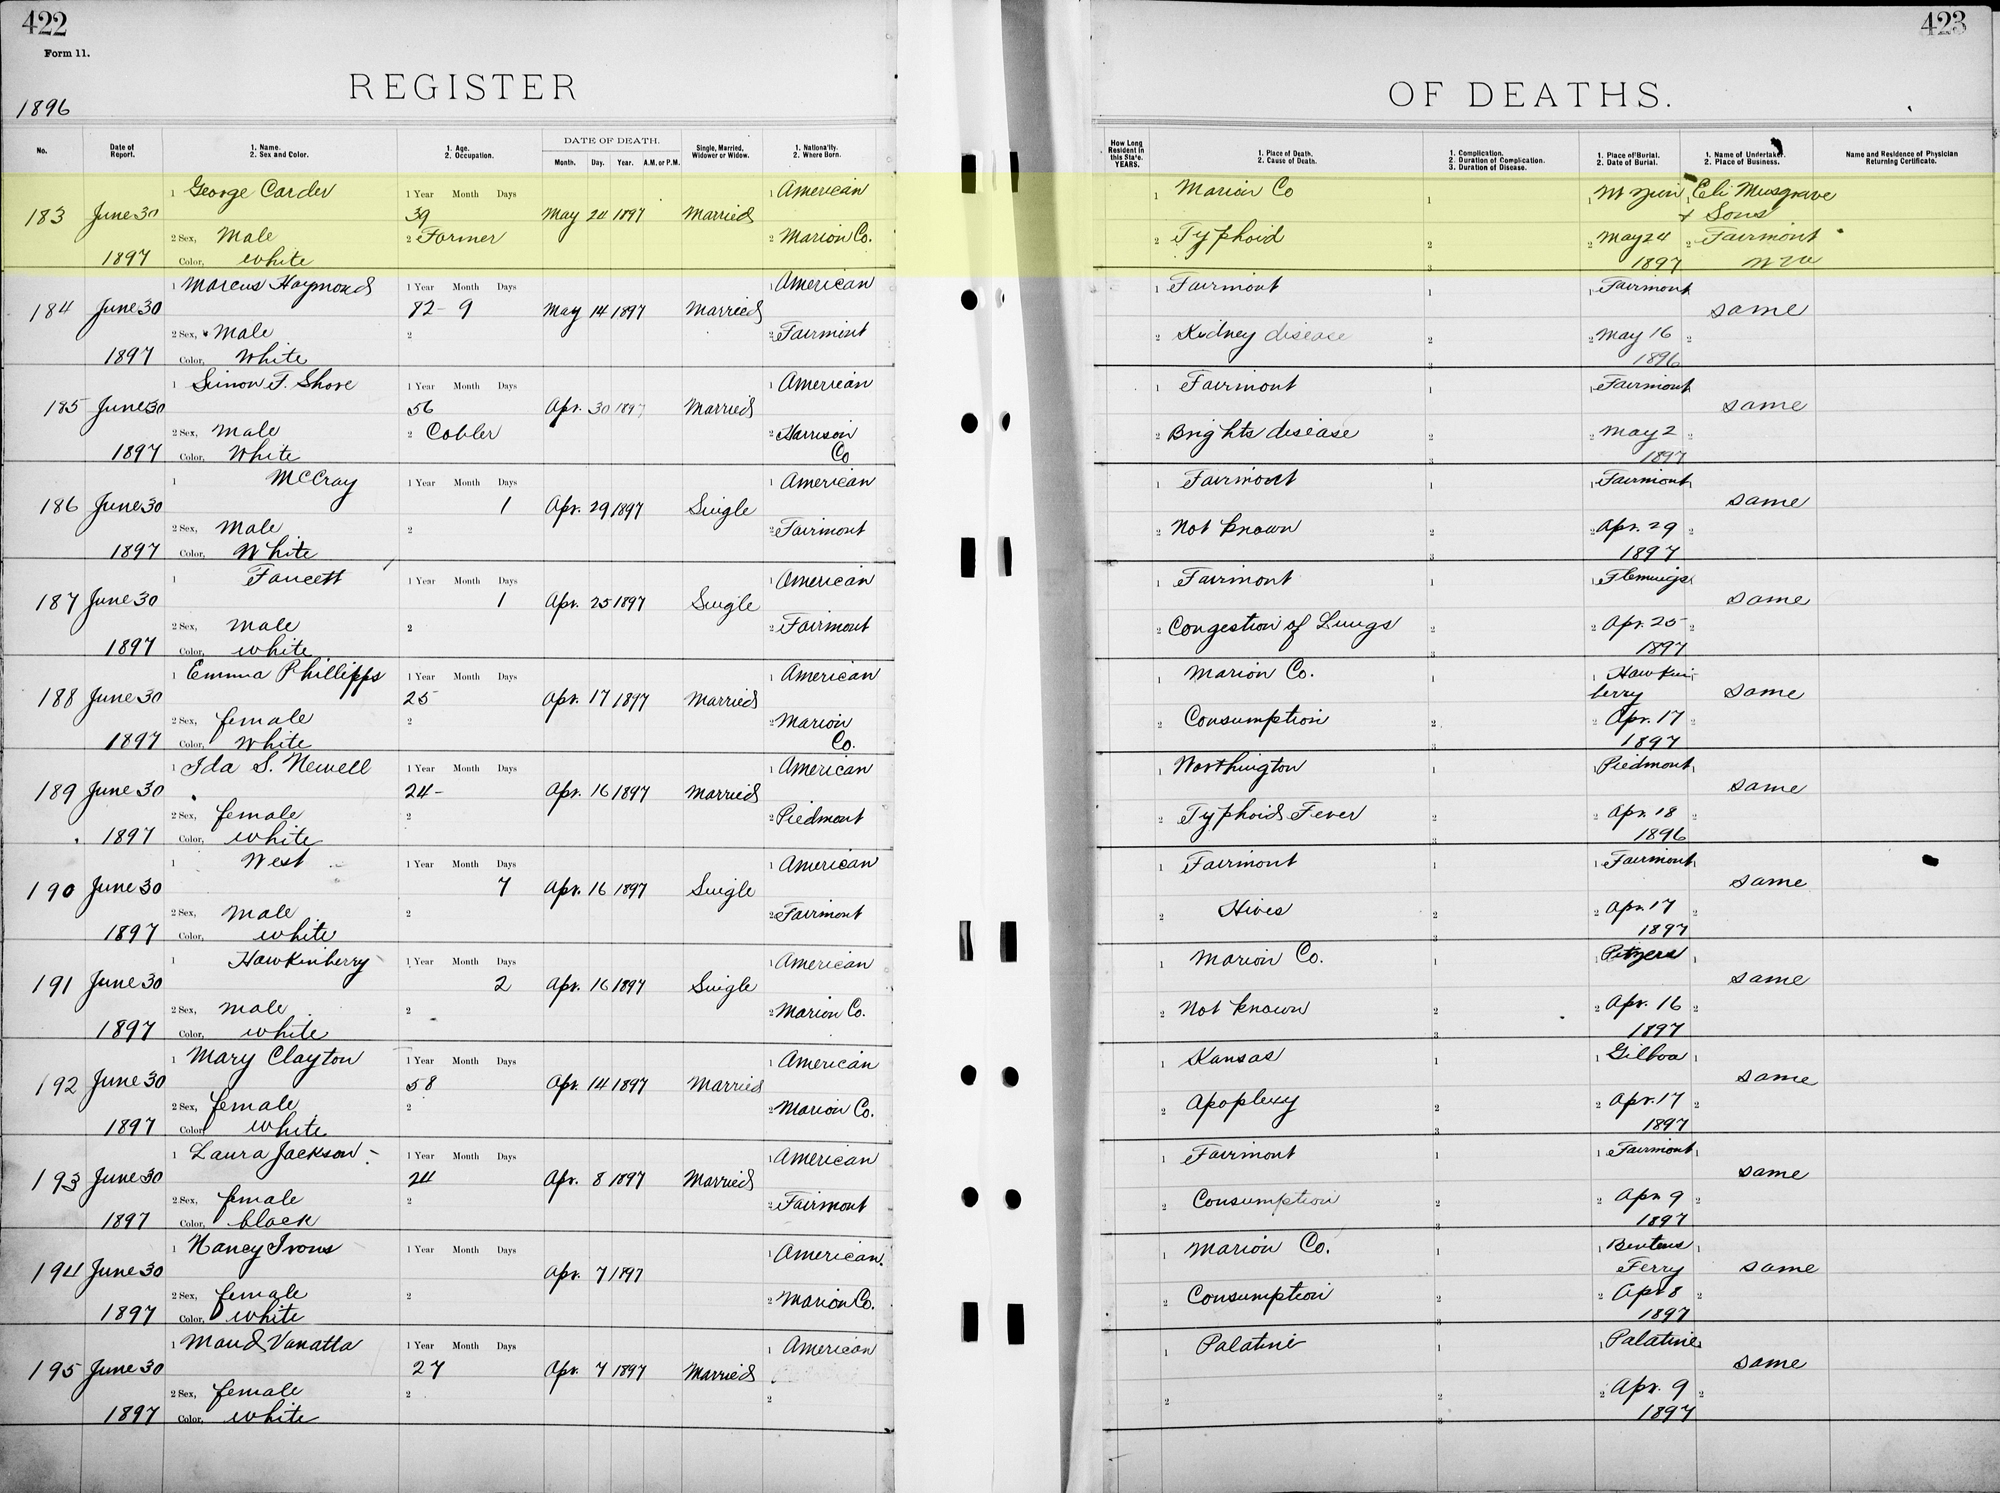 422
Form 11.
REGISTER
1896
No.
Date of Report.
1. Name.
2. Sex and Color.
1. Age.
2. Occupation.
DATE OF DEATH.
Month. Day. Year. A.M. or P.M.
Single, Married, Widower or Widow.
1. Nationa'lty.
2. Where Born.
1 George Carder 1 Year Month Days 1 American
183 June 30 39 May 24 1897 Married
2 Sex, Male 2 Farmer 2 Marion Co.
1897 Color, White
1 Marcus Haymond 1 Year Month Days 1 American
184 June 30 82 - 9 May 14 1897 Married
2 Sex, Male 2 2 Fairmont
1897 Color, White
1 Simon T. Shore 1 Year Month Days 1 American
185 June 30 56 Apr. 30 1897 Married
2 Sex, Male 2 Cobler 2 Harrison
1897 Color, White Co
1 McCray 1 Year Month Days 1 American
186 June 30 1 Apr. 29 1897 Single
2 Sex, Male 2 2 Fairmont
1897 Color, White
1 Faucett 1 Year Month Days 1 American
187 June 30 1 Apr. 25 1897 Single
2 Sex, Male 2 2 Fairmont
1897 Color, White
1 Emma Phillipps 1 Year Month Days 1 American
188 June 30 25 Apr. 17 1897 Married
2 Sex, female 2 2 Marion
1897 Color, White Co.
1 Ida S. Newell 1 Year Month Days 1 American
189 June 30 24 - Apr. 16 1897 Married
2 Sex, female 2 2 Piedmont
1897 Color, white
1 West 1 Year Month Days 1 American
190 June 30 7 Apr. 16 1897 Single
2 Sex, Male 2 2 Fairmont
1897 Color, white
1 Hawkinberry 1 Year Month Days 1 American
191 June 30 2 Apr. 16 1897 Single
2 Sex, male 2 2 Marion Co.
1897 Color, white
1 Mary Clayton 1 Year Month Days 1 American
192 June 30 58 Apr. 14 1897 Married
2 Sex, female 2 2 Marion Co.
1897 Color, white
1 Laura Jackson - 1 Year Month Days 1 American
193 June 30 24 Apr. 8 1897 Married
2 Sex, female 2 2 Fairmont
1897 Color, black
1 Nancy Irons 1 Year Month Days 1 American.
194 June 30 Apr. 7 1897
2 Sex, female 2 2 Marion Co.
1897 Color, white
1 Maud Vanatta 1 Year Month Days 1 American
195 June 30 27 Apr. 7 1897 Married
2 Sex, female 2 2
1897 Color, white
423
OF DEATHS.
How Long Resident in this State. YEARS.
1. Place of Death.
2. Cause of Death.
1. Complication.
2. Duration of Complication.
3. Duration of Disease.
1. Place of Burial.
2. Date of Burial.
1. Name of Undertaker.
2. Place of Business.
Name and Residence of Physician Returning Certificate.
1 Marion Co 1 1 Mt Zion 1 Eli Musgrave
& Sons
2 Typhoid 2 2 May 24 2 Fairmont
3 1897 W Va
1 Fairmont 1 1 Fairmont
same
2 Kidney disease 2 2 May 16 2
3 1896
1 Fairmont 1 1 Fairmont
same
2 Brights disease 2 2 May 2 2
3 1897
1 Fairmont 1 1 Fairmont
same
2 Not known 2 2 Apr. 29 2
3 1897
1 Fairmont 1 1 Flemings
same
2 Congestion of Lungs 2 2 Apr. 25 2
3 1897
1 Marion Co. 1 1 Hawkin-
berry same
2 Consumption 2 2 Apr. 17 2
3 1897
1 Worthington 1 1 Piedmont
same
2 Typhoid Fever 2 2 Apr. 18 2
3 1896
1 Fairmont 1 1 Fairmont
same
2 Hives 2 2 Apr. 17 2
3 1897
1 Marion Co. 1 1 Pitzers 1
same
2 Not known 2 2 Apr. 16 2
3 1897
1 Kansas 1 1 Gilboa 1
same
2 Apoplexy 2 2 Apr. 17 2
3 1897
1 Fairmont 1 1 Fairmont 1
same
2 Consumption 2 2 Apr. 9 2
3 1897
1 Marion Co. 1 1 Bentons 1
Ferry same
2 Consumption 2 2 Apr 8 2
3 1897
1 Palatine 1 1 Palatine
same
2 2 2 Apr. 9 2
3 1897